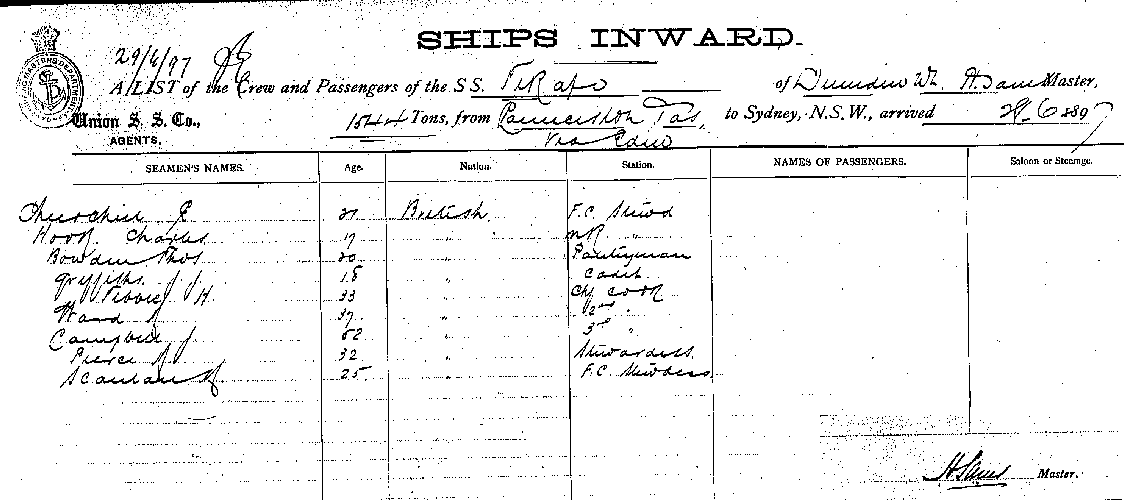 SHIPS INWARD.
29/6/97
A LIST of the Crew and Passengers of the S S. of Dunedin Wh. Master,
Union S. S. Co., 1544 Tons, from Launceston Tas, to Sydney, N.S.W., arrived 28. 6 1897
AGENTS. Via Eden
SEAMEN'S NAMES. Age. Nation. Station. NAMES OF PASSENGERS. Saloon or Steerage.
Churchill E 21 British F.C. Stewd
Charles 19 " "
Bowden Thos 20 " Pantryman
Griffiths J J. 18 " Cadet
H 33 " Chf Cook
Ward 37 " 2nd "
Campbell J 52 " 3rd "
Pierce 32 " Stewardess
Scanlan 25 " F.C. Stewdess
Master.